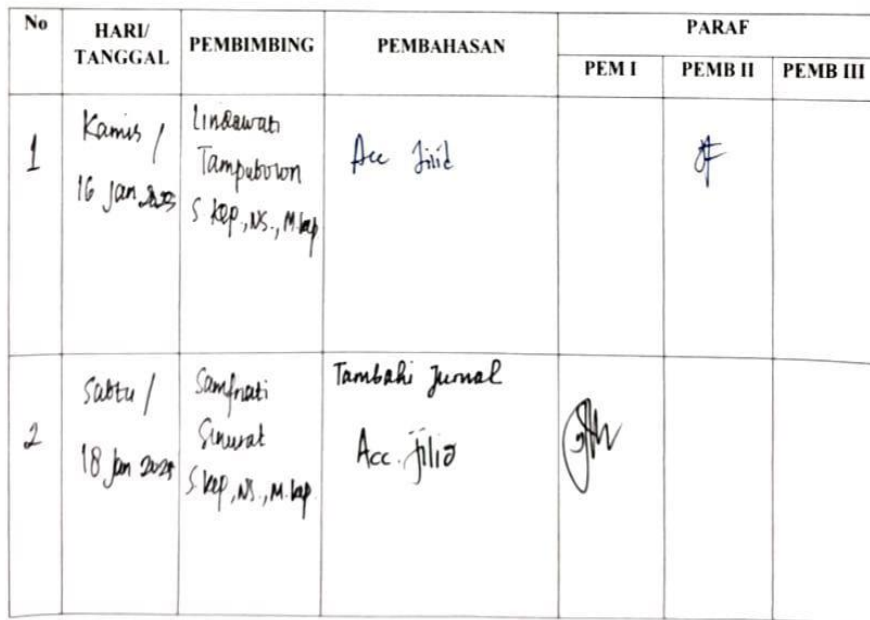 No
HARI/
TANGGAL
PEMBIMBING
PEMBAHASAN
PARAF
PEM I
PEMB II
PEMB III
1
Kamis /
16 Jan 2025
Lindawati
Tampubolon
S.Kep.,NS.,M.kep
Acc Jilid
2
Sabtu /
18 Jan 2025
Samfriati
Sinurat
S.Kep.,NS.,M.kep
Tambahi Jurnal
Acc. Jilid